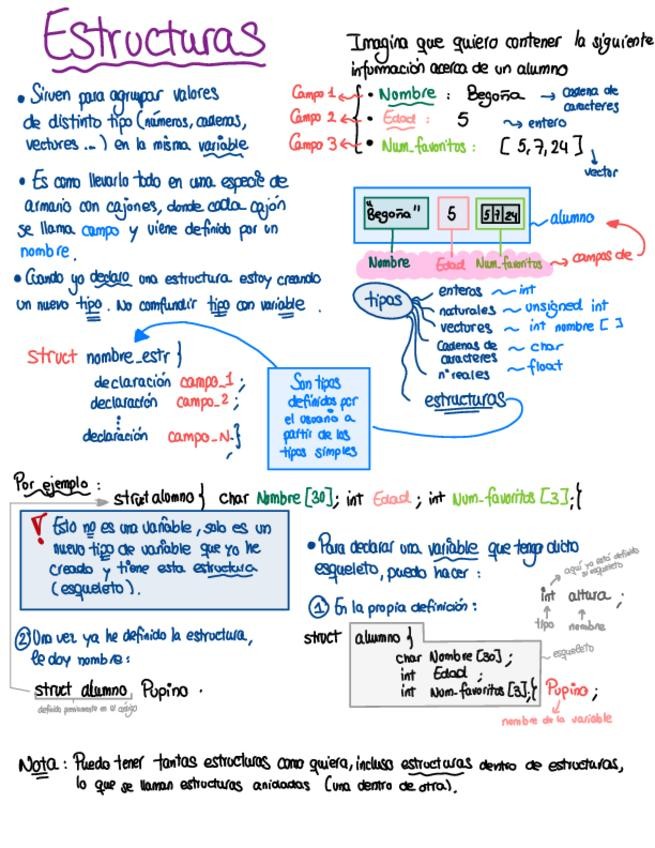 Estructuras
• Sirven para agrupar valores
de distinto tipo (números, cadenas,
vectores ...) en la misma variable
• Es como llevarlo todo en una especie de
armario con cajones, donde cada cajón
se llama campo y viene definido por un
nombre.
• Cuando yo declaro una estructura estoy creando
un nuevo tipo. No comfundir tipo con variable.
Imagina que quiero contener la siguiente
información acerca de un alumno
Campo 1 • Nombre : Begoña → cadena de
caracteres
Campo 2 • Edad : 5 → entero
Campo 3 • Num_favoritos : [5,7,24]
vector
"Begoña" 5 5 7 24 alumno
Nombre Edad Num_favoritos → campos de
tipos
enteros ~ int
naturales ~ unsigned int
vectores ~ int nombre [ ]
cadenas de ~ char
caracteres
nº reales ~ float
estructuras
struct nombre_estr {
declaración campo_1 ;
declaración campo_2 ;
⋮
declaración campo_N. }
;
Son tipos
definidos por
el usuario a
partir de los
tipos simples
Por ejemplo :
struct alumno { char Nombre [30]; int Edad ; int Num_favoritos [3];{
! Esto no es una variable, solo es un
nuevo tipo de variable que yo he
creado y tiene esta estructura
(esqueleto).
• Para declarar una variable que tenga dicto
esqueleto, puedo hacer :
① En la propia definición :
aquí ya está definido
su esqueleto
int altura ;
tipo nombre
struct alumno {
char Nombre [30] ;
int Edad ;
int Num_favoritos [3];{ Pupino ;
esqueleto
nombre de la variable
② Una vez ya he definido la estructura,
le doy nombre :
struct alumno Pupino .
definido previamente en el código
Nota : Puedo tener tantas estructuras como quiera, incluso estructuras dentro de estructuras,
lo que se llaman estructuras anidadas (una dentro de otra).